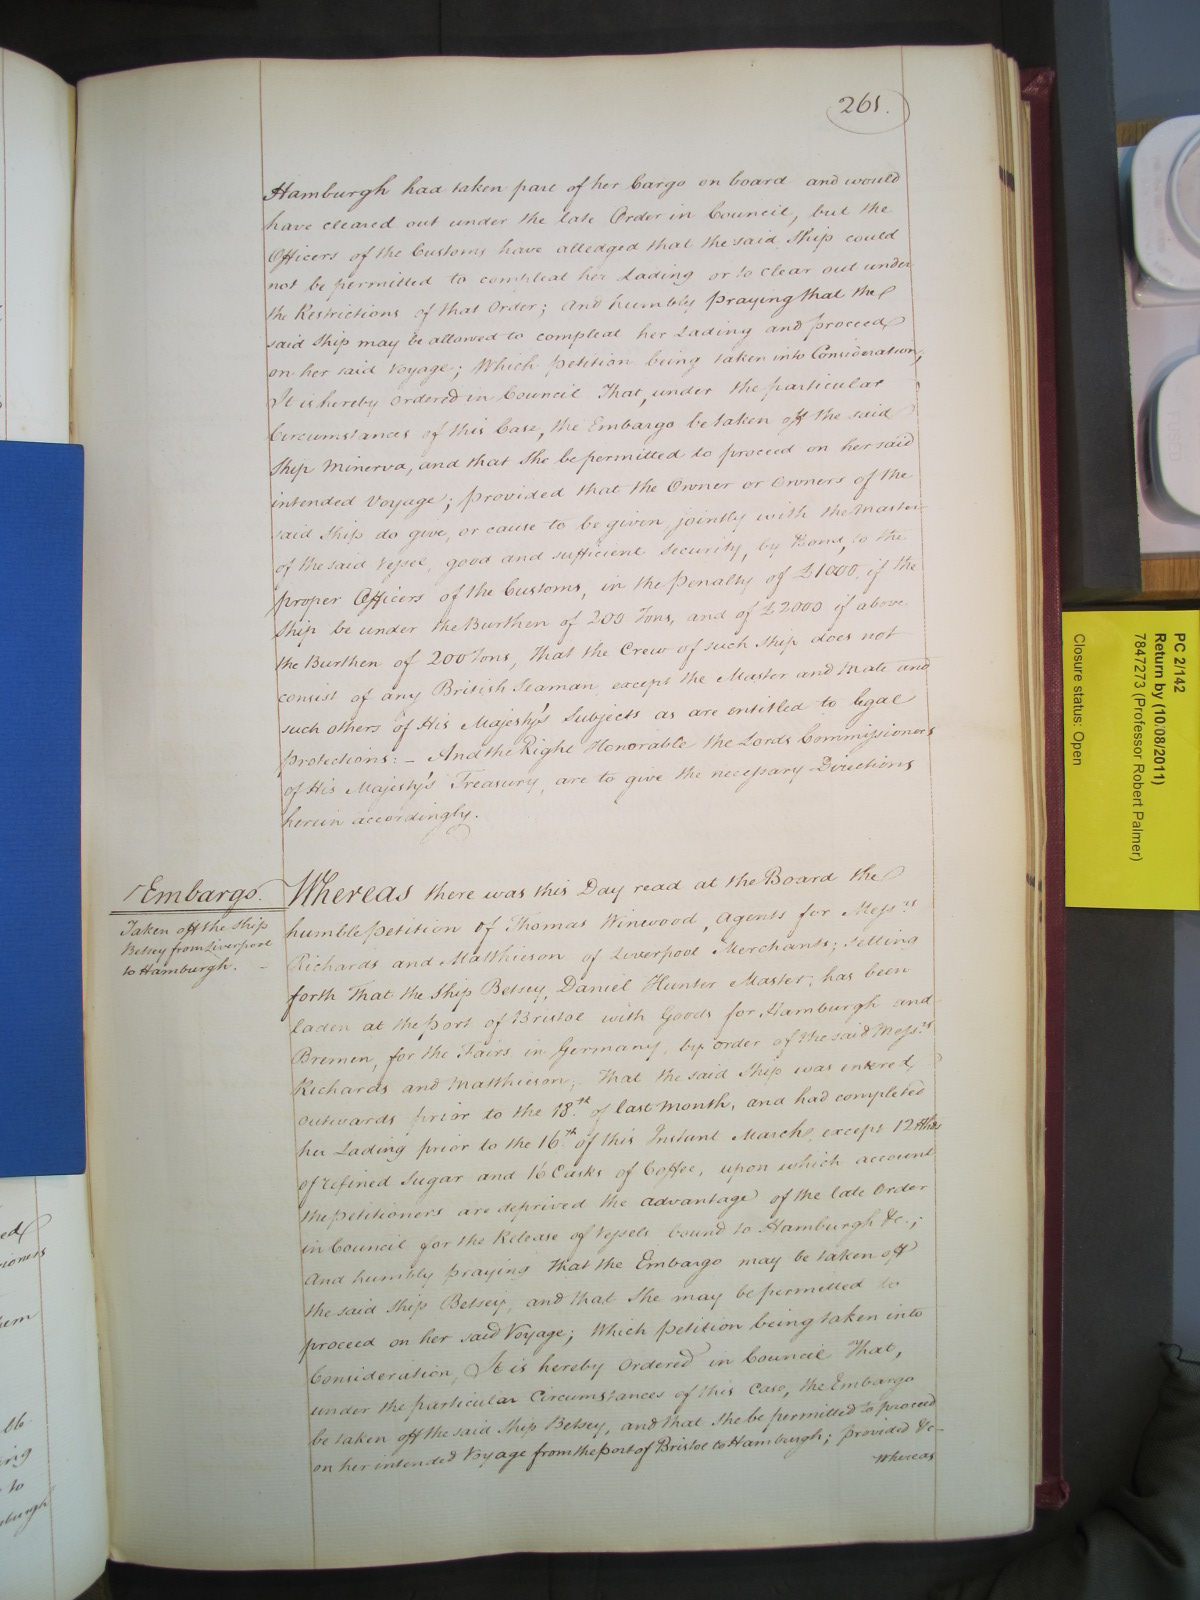 261.
Hamburgh had taken part of her Cargo on board and would
have cleared out under the late Order in Council, but the
Officers of the Customs have alledged that the said Ship could
not be permitted to compleat her Lading or to clear out under
the Restrictions of that Order; And humbly praying that the
said Ship may be allowed to compleat her Lading and proceed
on her said Voyage; Which Petition being taken into Consideration,
It is hereby Ordered in Council That, under the particular
Circumstances of this Case, the Embargo be taken off the said
Ship Minerva, and that She be permitted to proceed on her said
intended Voyage; provided that the Owner or Owners of the
said Ship do give, or cause to be given jointly with the Master
of the said Vessel, good and sufficient Security, by Bond, to the
proper Officers of the Customs, in the Penalty of £1000 if the
Ship be under the Burthen of 200 Tons, and of £2000 if above
the Burthen of 200 Tons, That the Crew of such Ship does not
consist of any British Seaman except the Master and Mate and
such others of His Majesty's Subjects as are entitled to legal
Protections: – And the Right Honorable the Lords Commissioners
of His Majesty's Treasury, are to give the necessary Directions
herein accordingly.
Embargo.
Taken off the Ship
Betsey from Liverpool
to Hamburgh. –
Whereas there was this Day read at the Board the
humble Petition of Thomas Winwood, Agents for Messrs
Richards and Matthieson of Liverpool Merchants; Setting
forth That the Ship Betsey, Daniel Hunter Master, has been
laden at the Port of Bristol with Goods for Hamburgh and
Bremen, for the Fairs in Germany, by order of the said Messrs
Richards and Matthieson; That the said Ship was entered
outwards prior to the 18th of last Month, and had completed
her Lading prior to the 16th of this Instant March, except 12 Hhds
of refined Sugar and 16 Casks of Coffee, upon which account
the Petitioners are deprived the advantage of the late Order
in Council for the Release of Vessels bound to Hamburgh &c.;
And humbly praying That the Embargo may be taken off
the said Ship Betsey, and that She may be permitted to
proceed on her said Voyage; Which Petition being taken into
Consideration, It is hereby Ordered in Council That,
under the particular Circumstances of this Case, the Embargo
be taken off the said Ship Betsey, and that She be permitted to proceed
on her intended Voyage from the Port of Bristol to Hamburgh; provided &c–
Whereas
PC 2/142
Return by (10/08/2011)
7847273 (Professor Robert Palmer)
Closure status: Open